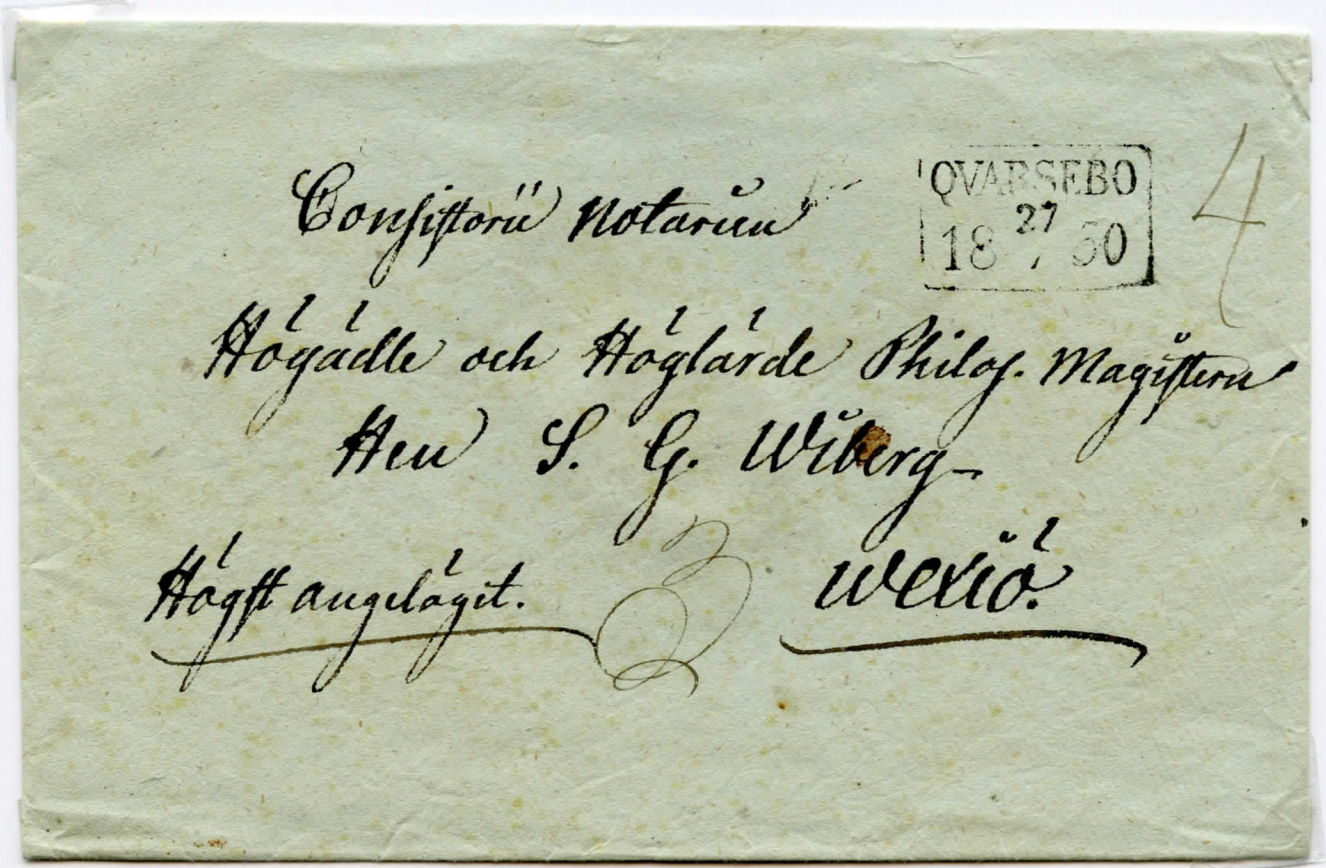 Consistorii Notarien
QVARSEBO
18 27 / 7 50
4
Högädle och Höglärde Philos. Magistern
Herr S. G. Wiberg
Högst angelägit.
Wexiö.